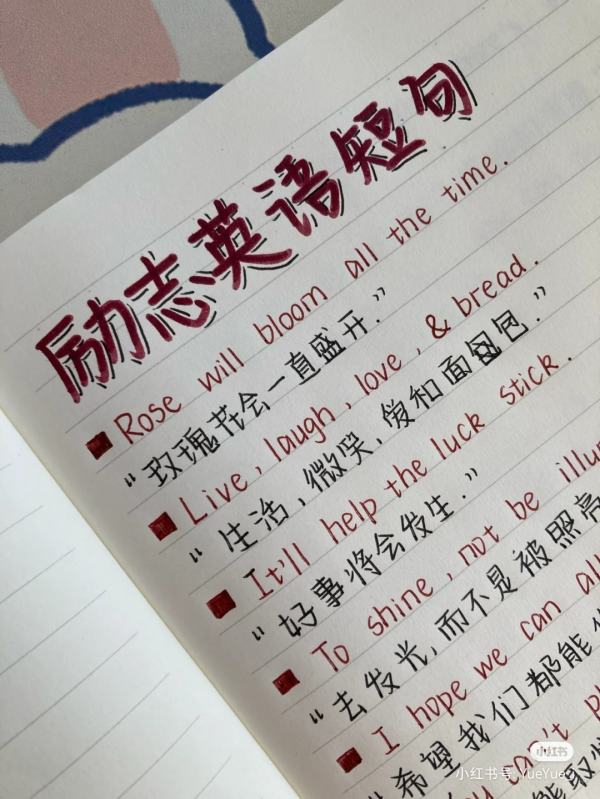 励志英语短句
Rose will bloom all the time.
“玫瑰花会一直盛开.”
Live, laugh, love, & bread.
“生活,微笑,爱和面包.”
It'll help the luck stick.
“好事将会发生.”
To shine, not be
“去发光,而不是被照亮
I hope we can all
“希望我们都能
can't
小红书
小红书号: YueYue